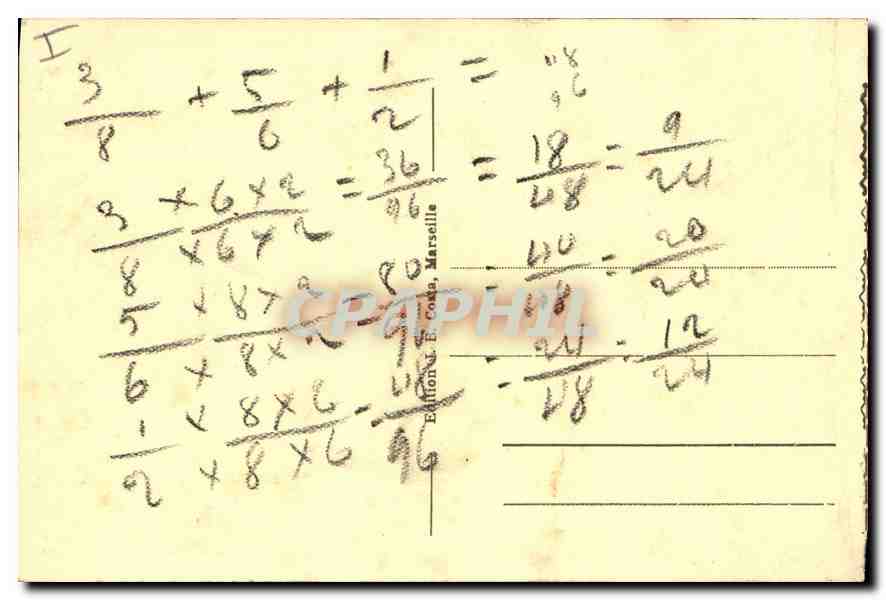 I
3/8 + 5/6 + 1/2 =
48
6
96
3/8 × 6 × 2 / × 6 × 2 = 36/96 = 18/48 = 9/24
5/6 × 8 × 2 / × 8 × 2 = 80/96 = 40/48 = 20/24
1/2 × 8 × 6 / × 8 × 6 = 48/96 = 24/48 = 12/24
Edition J. E. Costa, Marseille
CPAPHIL